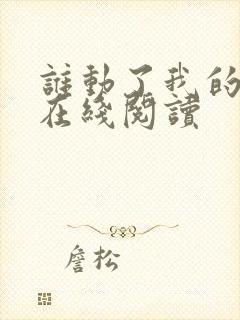 誰動了我的
在綫閱讀
詹松